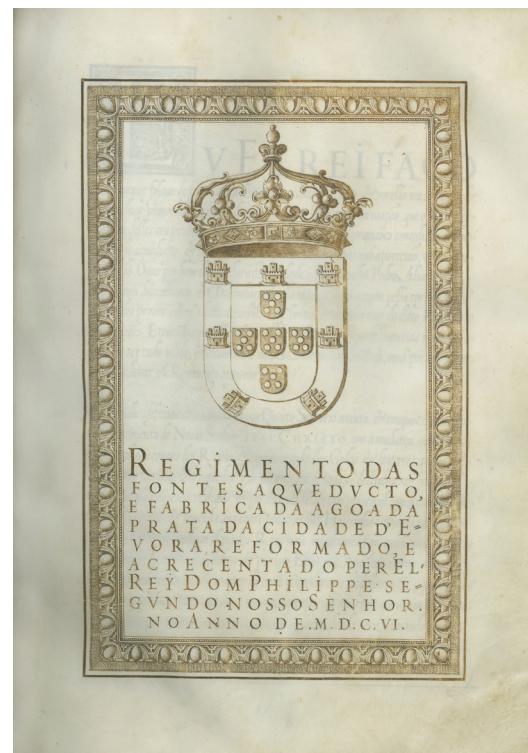 REGIMENTO DAS
FONTES AQVEDVCTO,
E FABRICA DA AGOA DA
PRATA DA CIDADE D' E=
VORA, REFORMADO, E
ACRECENTADO PER EL'
REY DOM PHILIPPE SE=
GVNDO NOSSO SENHOR.
NO ANNO DE. M. D. C. VI.